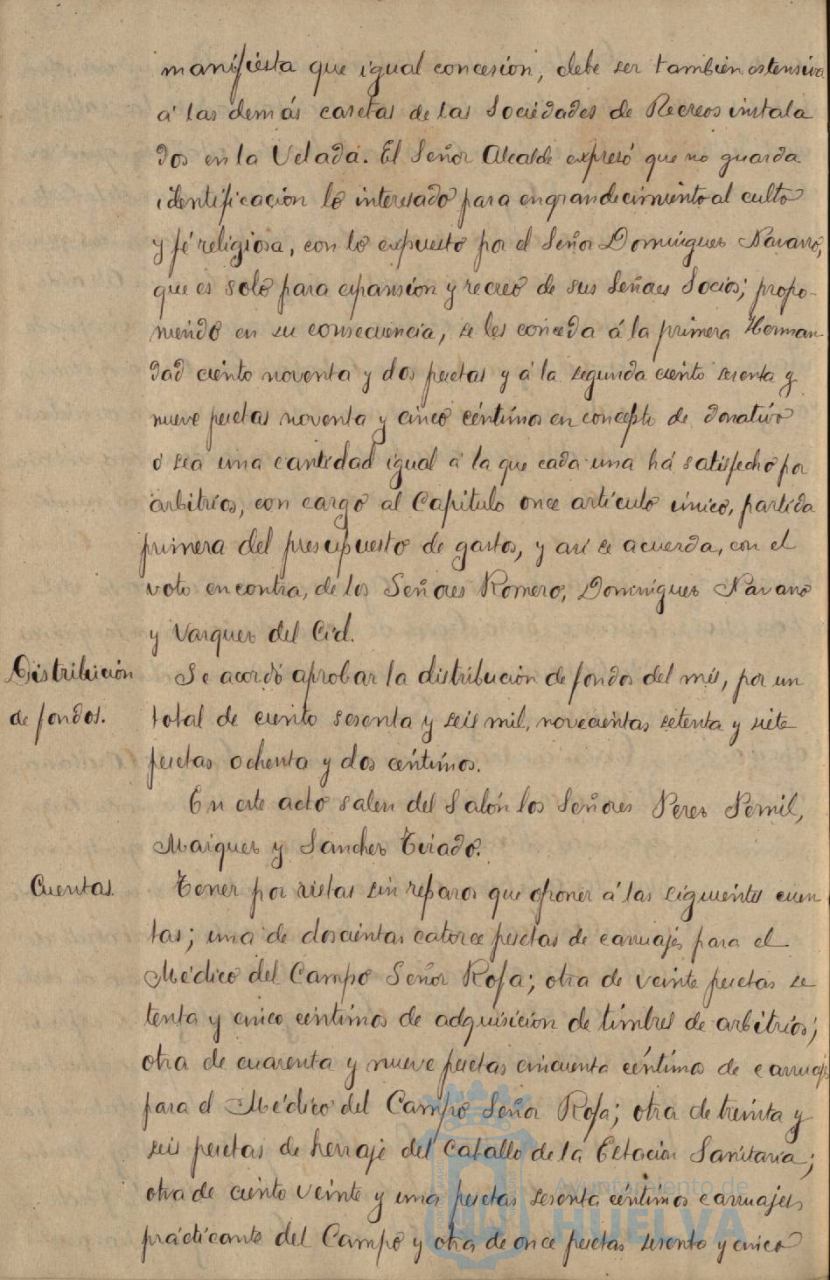 manifiesta que igual concesión, debe ser también estensiva
á las demás casetas de las Sociedades de Recreos instala
dos en la Velada. El Señor Alcalde expresó que no guarda
identificación lo interesado para engrandecimiento al culto
y fé religiosa, con lo expuesto por el Señor Domínguez Navarro,
que es solo para expansión y recreo de sus Señores Socios; propo-
niendo en su consecuencia, se les conceda á la primera Herman
dad ciento noventa y dos pesetas y á la segunda ciento sesenta y
nueve pesetas noventa y cinco céntimos en concepto de donativo
ó sea una cantidad igual á la que cada una há satisfecho por
arbitrios, con cargo al Capítulo once artículo único, partida
primera del presupuesto de gastos, y así se acuerda, con el
voto en contra, de los Señores Romero, Domínguez Navarro
y Vazquez del Cid.
Distribución
de fondos.
Se acordó aprobar la distribución de fondos del mes, por un
total de ciento sesenta y seis mil, novecientas setenta y siete
pesetas ochenta y dos céntimos.
En este acto salen del Salón los Señores Perez Pomil,
Maiquez y Sanchez Tirado.
Cuentas.
Tener por vistas sin reparos que oponer á las siguientes cuen
tas; una de doscientas catorce pesetas de carruajes para el
Médico del Campo Señor Rofa; otra de veinte pesetas se
tenta y cinco céntimos de adquisición de timbres de arbitrios;
otra de cuarenta y nueve pesetas cincuenta céntimos de carruaje
para el Médico del Campo Señor Rofa; otra de treinta y
seis pesetas de herraje del Caballo de la Estación Sanitaria;
otra de ciento veinte y una pesetas sesenta céntimos carruajes
practicante del Campo y otra de once pesetas sesenta y cinco
Ayuntamiento de
HUELVA